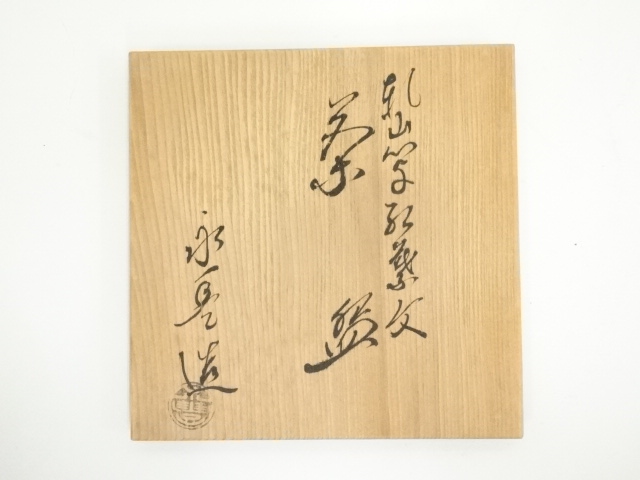 乾山写紅葉文
茶盌
永楽造